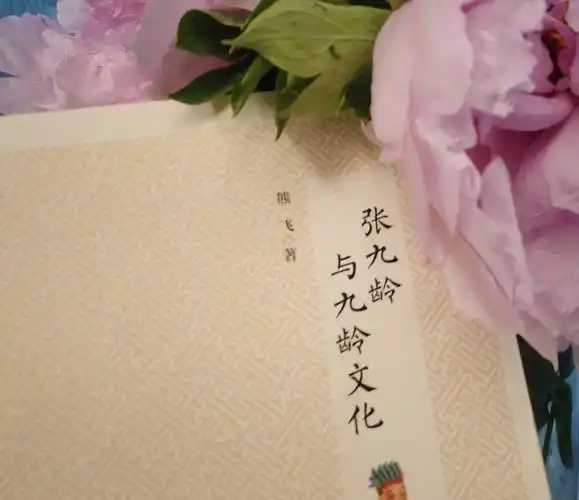 张九龄
与九龄文化
熊飞 著